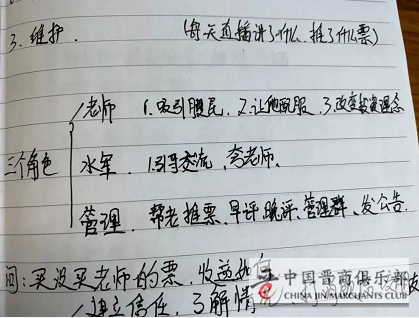 3. 维护. (每天直播讲了什么、推了什么票)
老师 1.吸引股民, 2.让他佩服, 3.改变投资理念
三个角色 水军. 1.引导交流, 夸老师、
管理. 帮老推票、早评、晚评、管理群、发公告.
问: 买没买老师的票, 收益如何
建立信任, 了解情况
中国晋商俱乐部
CHINA JIN MERCHANTS CLUB